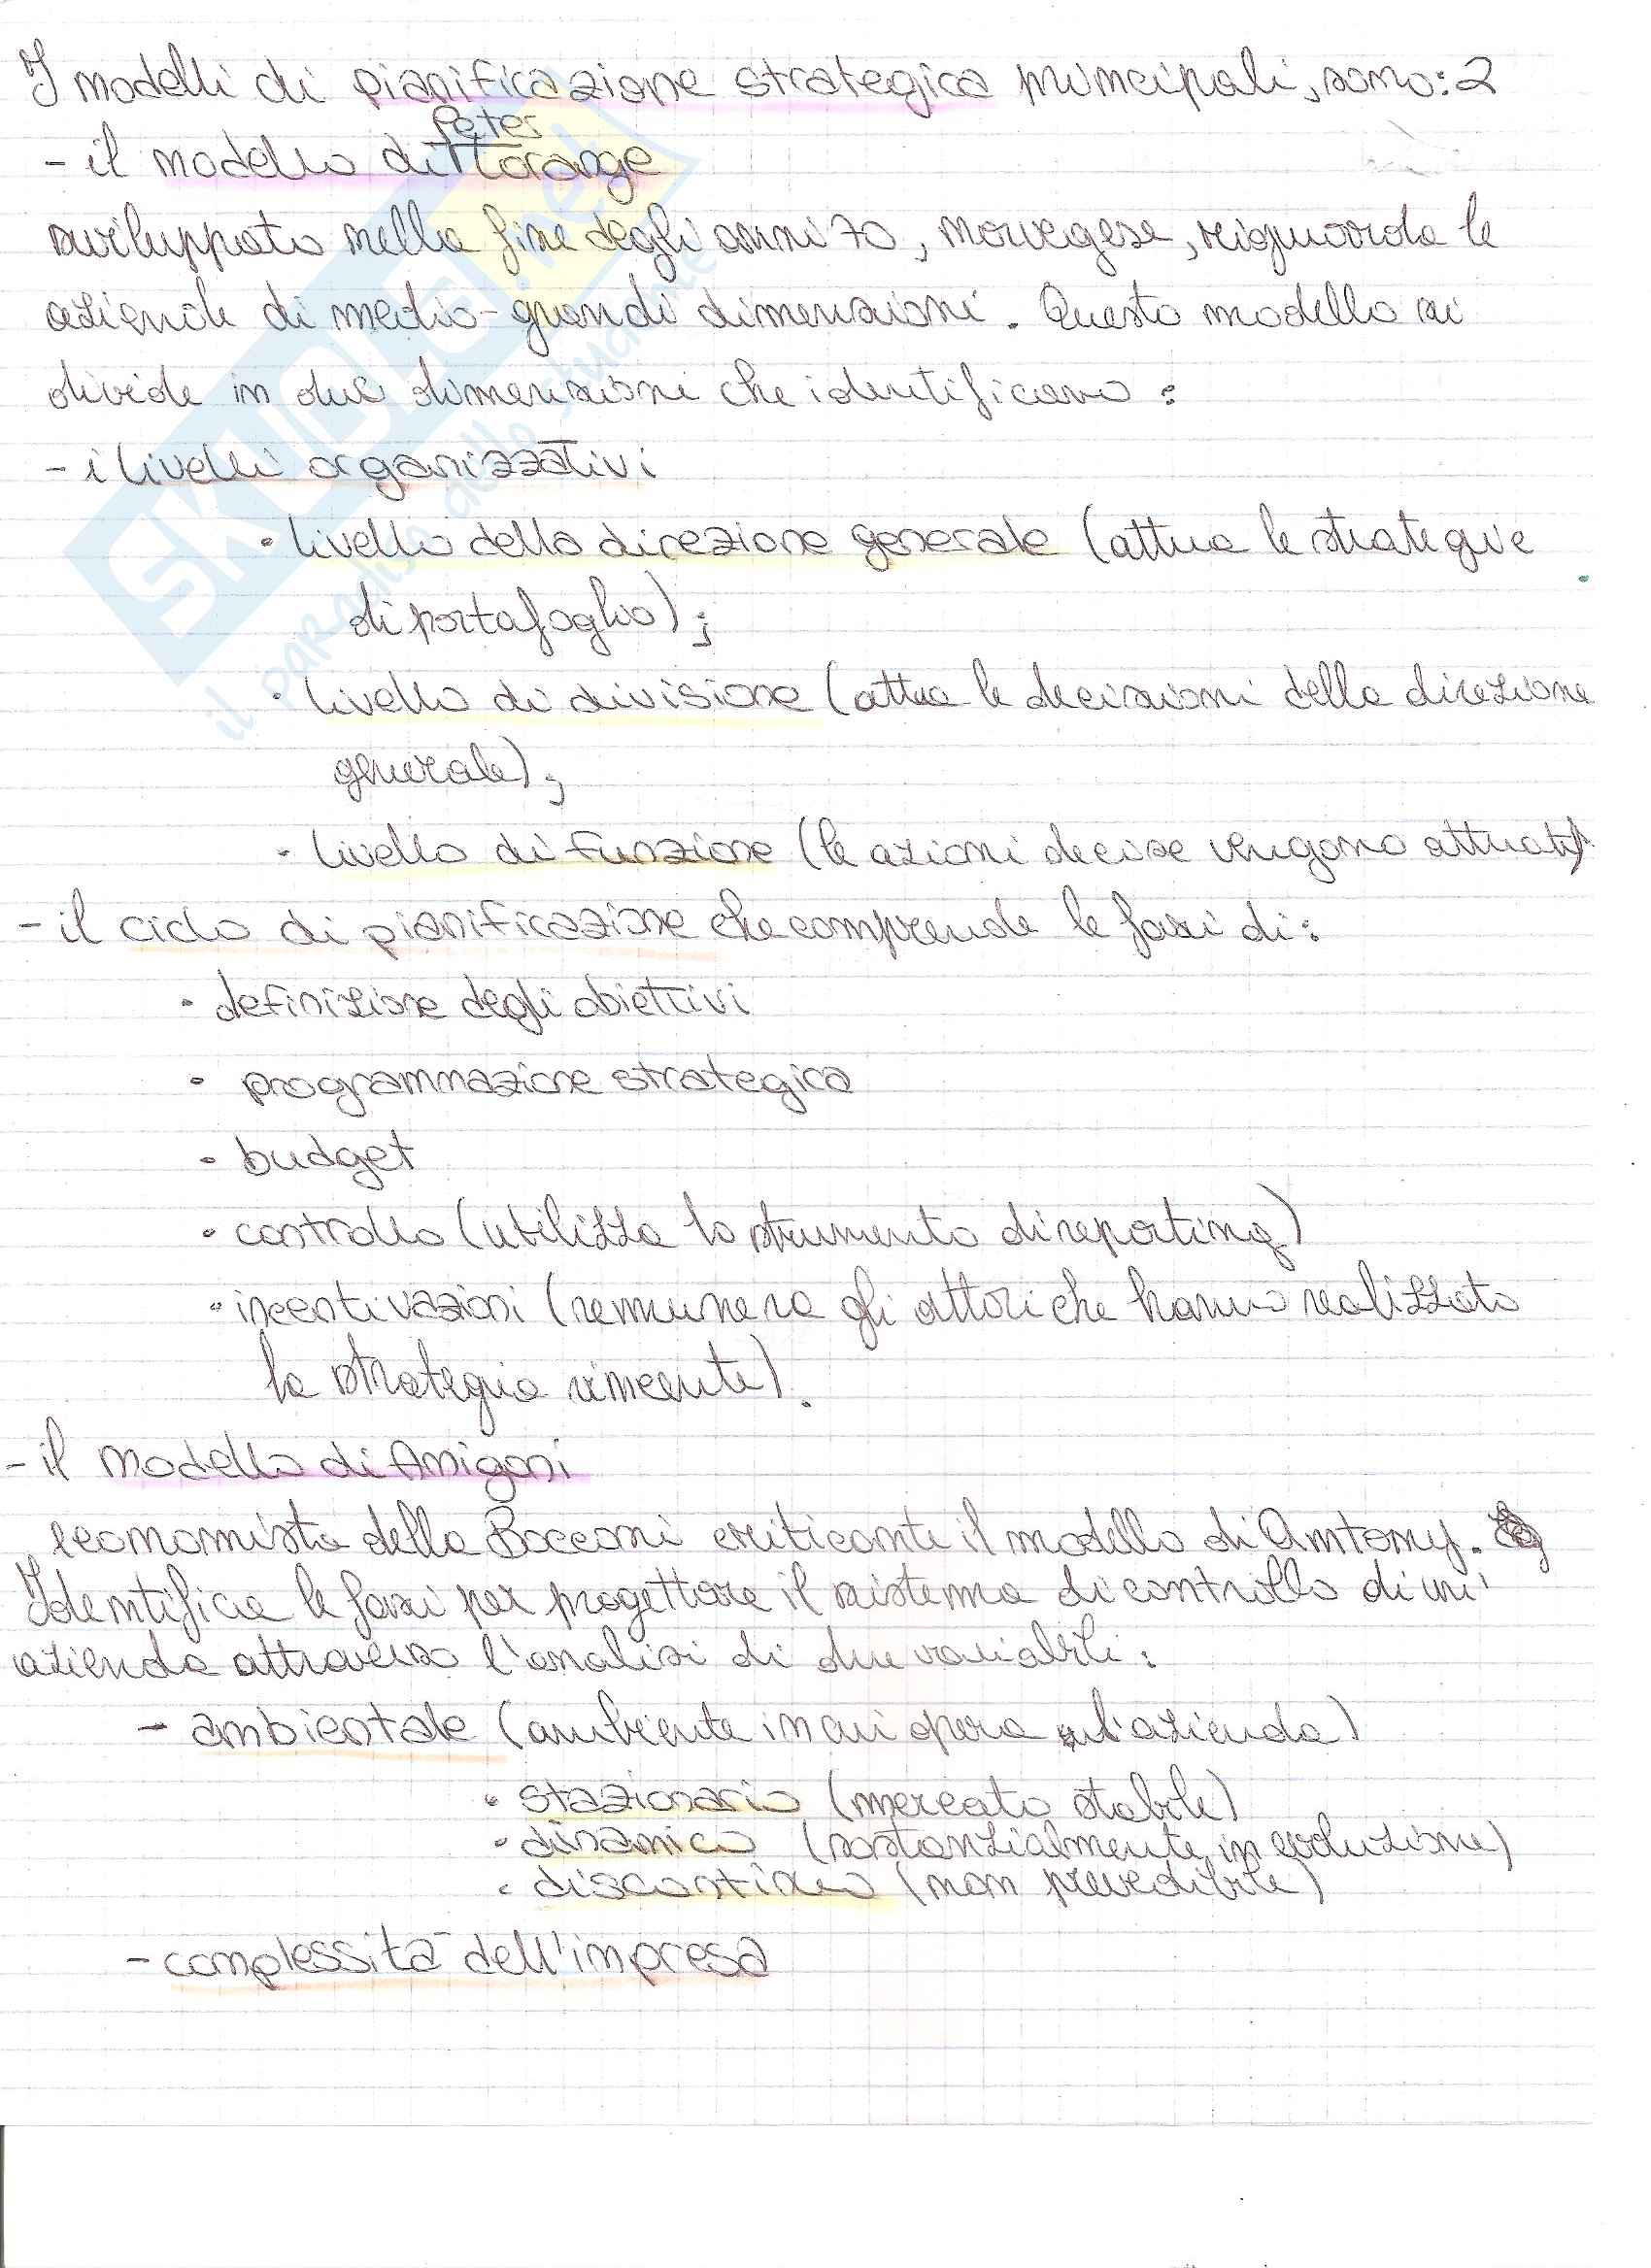 I modelli di pianificazione strategica principali, sono: 2
Peter
- il modello di Lorange
sviluppato nella fine degli anni 70, norvegese, riguarda le
aziende di medio-grandi dimensioni. Questo modello si
divide in due dimensioni che identificano:
- i livelli organizzativi
• livello della direzione generale (attua le strategie
di portafoglio);
• livello di divisione (attua le decisioni della direzione
generale);
• livello di funzione (le azioni decise vengono attuate)
- il ciclo di pianificazione che comprende le fasi di:
• definizione degli obiettivi
• programmazione strategica
• budget
• controllo (utilizza lo strumento di reporting)
• incentivazioni (remunera gli attori che hanno realizzato
la strategia vincente).
- il modello di Amigoni
economista della Bocconi criticante il modello di Antony.
Identifica le fasi per progettare il sistema di controllo di un'
azienda attraverso l'analisi di due variabili:
- ambientale (ambiente in cui opera l'azienda)
• stazionario (mercato stabile)
• dinamico (sostanzialmente in evoluzione)
• discontinuo (non prevedibile)
- complessità dell'impresa
SKUOLA.net
il paradiso dello studente